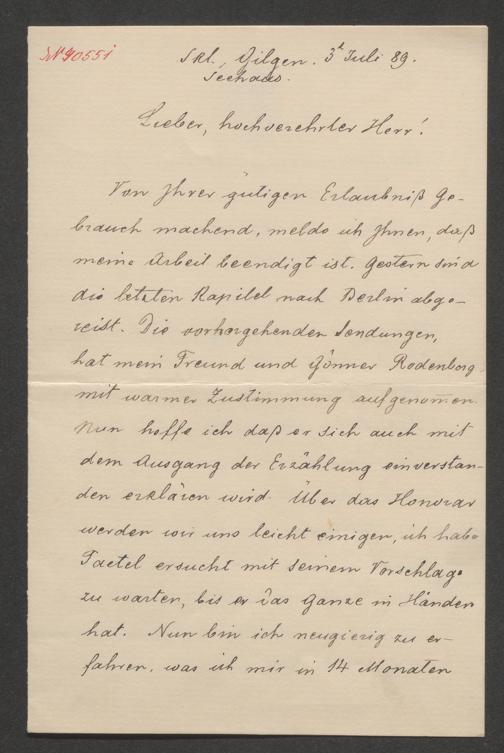 N 90551
Skt. Gilgen. 3t Juli 89.
Seehaus.
Lieber, hochverehrter Herr!
Von Ihrer gütigen Erlaubniß Ge-
brauch machend, melde ich Ihnen, daß
meine Arbeit beendigt ist. Gestern sind
die letzten Kapitel nach Berlin abge-
reist. Die vorhergehenden Sendungen,
hat mein Freund und Gönner Rodenberg
mit warmer Zustimmung aufgenom̅en.
Nun hoffe ich daß er sich auch mit
dem Ausgang der Erzählung einverstan-
den erklären wird. Über das Honorar
werden wir uns leicht einigen, ich habe
Paetel ersucht mit seinem Vorschlage
zu warten, bis er das Ganze in Händen
hat. Nun bin ich neugierig zu er-
fahren, was ich mir in 14 Monaten